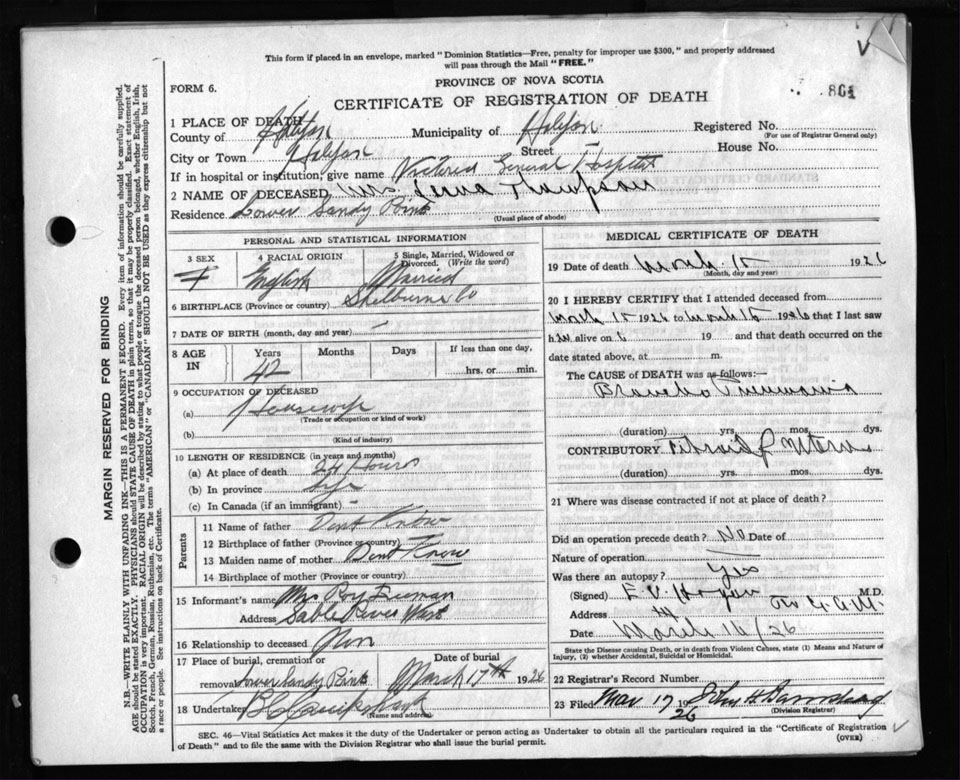 This form if placed in an envelope, marked "Dominion Statistics—Free, penalty for improper use $300," and properly addressed
will pass through the Mail "FREE."
PROVINCE OF NOVA SCOTIA
FORM 6.
CERTIFICATE OF REGISTRATION OF DEATH
801
1 PLACE OF DEATH
County of Halifax Municipality of Halifax Registered No.
(For use of Registrar General only)
City or Town Halifax Street House No.
If in hospital or institution, give name Victoria General Hospital
2 NAME OF DECEASED Mrs. Thompson
Residence Lower Sandy Point
(Usual place of abode)
PERSONAL AND STATISTICAL INFORMATION
3 SEX F
4 RACIAL ORIGIN English
5 Single, Married, Widowed or Divorced. (Write the word) Married
6 BIRTHPLACE (Province or country) Shelburne Co
7 DATE OF BIRTH (month, day and year) —
8 AGE IN Years 42 Months Days If less than one day, hrs. or min.
9 OCCUPATION OF DECEASED
(a) Housewife
(Trade or occupation or kind of work)
(b)
(Kind of industry)
10 LENGTH OF RESIDENCE (in years and months)
(a) At place of death 24 Hours
(b) In province Life
(c) In Canada (if an immigrant) -
Parents
11 Name of father Dont Know
12 Birthplace of father (Province or country)
13 Maiden name of mother Dont Know
14 Birthplace of mother (Province or country)
15 Informant's name Mrs Roy
Address Sable River West
16 Relationship to deceased Non
17 Place of burial, cremation or removal Lower Sandy Point
Date of burial March 17th 1926
18 Undertaker
(Name and address)
MEDICAL CERTIFICATE OF DEATH
19 Date of death March 15 1926
(Month, day and year)
20 I HEREBY CERTIFY that I attended deceased from
March 15 1926 to March 15 1926 that I last saw
h alive on 19 and that death occurred on the
date stated above, at m.
The CAUSE of DEATH was as follows:
Broncho Pneumonia
(duration) yrs. mos. dys.
CONTRIBUTORY Fibroid of Uterus
(duration) yrs. mos. dys.
21 Where was disease contracted if not at place of death?
Did an operation precede death? No Date of
Nature of operation
Was there an autopsy? Yes
(Signed) E. V. Hogan M.D.
Address
Date March 16/26
State the Disease causing Death, or in death from Violent Causes, state (1) Means and Nature of
Injury, (2) whether Accidental, Suicidal or Homicidal.
22 Registrar's Record Number
23 Filed Mar 17 1926 John H.
(Division Registrar)
SEC. 46—Vital Statistics Act makes it the duty of the Undertaker or person acting as Undertaker to obtain all the particulars required in the "Certificate of Registration
of Death" and to file the same with the Division Registrar who shall issue the burial permit.
(OVER)
MARGIN RESERVED FOR BINDING
N.B.—WRITE PLAINLY WITH UNFADING INK—THIS IS A PERMANENT RECORD. Every item of information should be carefully supplied.
AGE should be stated EXACTLY. PHYSICIANS should STATE CAUSE OF DEATH in plain terms, so that it may be properly classified. Exact statement of
OCCUPATION is very important. RACIAL ORIGIN will be described by stating to what people or tongue the deceased person belonged, whether English, Irish,
Scotch, French, German, Russian, Ruthenian, etc. The terms "AMERICAN" or "CANADIAN" SHOULD NOT BE USED as they express citizenship but not
a race or people. See instructions on back of Certificate.